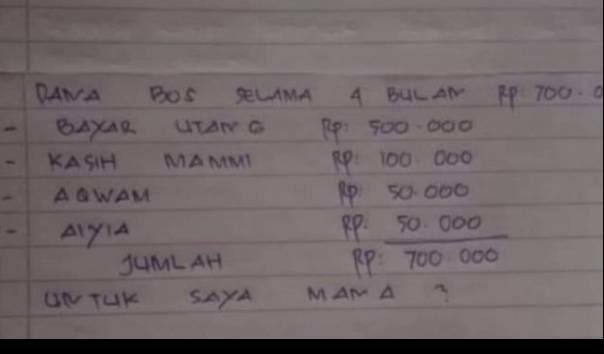 DANA BOS SELAMA 4 BULAN Rp: 700.0
- BAYAR UTANG Rp: 500.000
- KASIH MAMMI Rp: 100.000
- AQWAM Rp: 50.000
- AIYIA Rp: 50.000
JUMLAH Rp: 700.000
UNTUK SAYA MANA ?